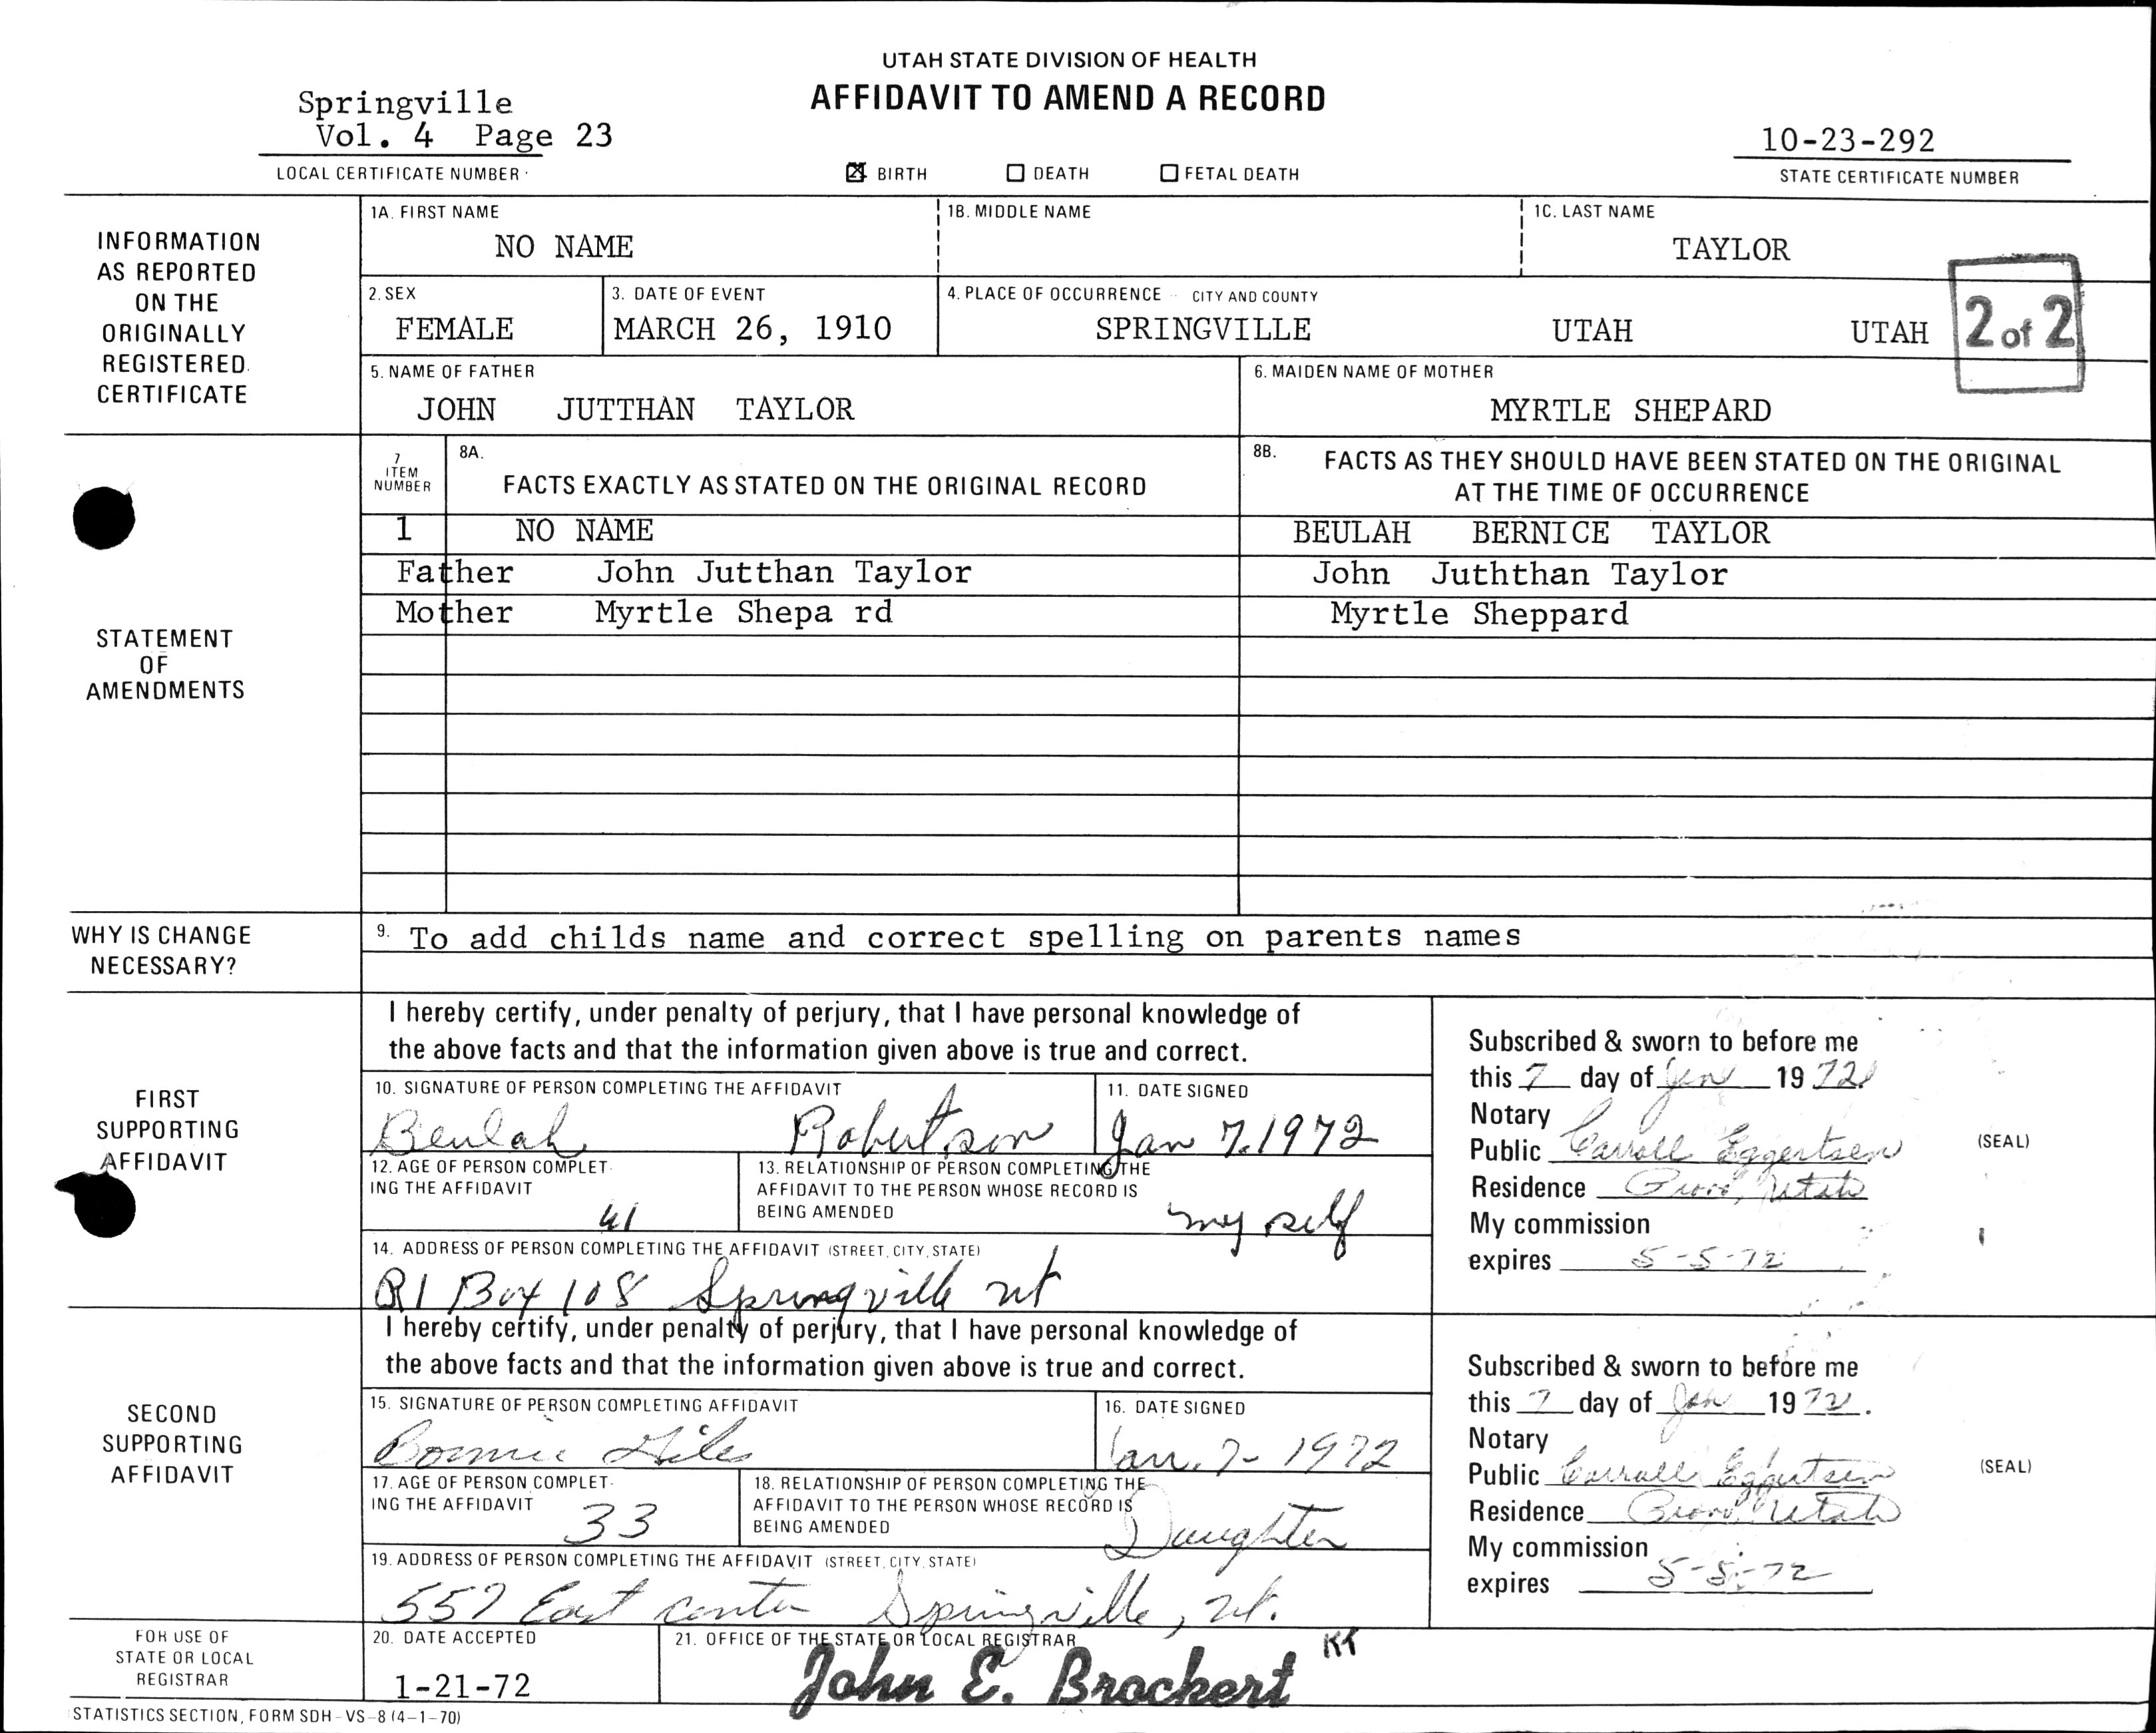 UTAH STATE DIVISION OF HEALTH
AFFIDAVIT TO AMEND A RECORD
Springville
Vol. 4 Page 23
LOCAL CERTIFICATE NUMBER
☒ BIRTH ☐ DEATH ☐ FETAL DEATH
10-23-292
STATE CERTIFICATE NUMBER
INFORMATION
AS REPORTED
ON THE
ORIGINALLY
REGISTERED
CERTIFICATE
1A. FIRST NAME 1B. MIDDLE NAME 1C. LAST NAME
NO NAME TAYLOR
2. SEX 3. DATE OF EVENT 4. PLACE OF OCCURRENCE - CITY AND COUNTY
FEMALE MARCH 26, 1910 SPRINGVILLE UTAH UTAH
2 of 2
5. NAME OF FATHER 6. MAIDEN NAME OF MOTHER
JOHN JUTTHAN TAYLOR MYRTLE SHEPARD
STATEMENT
OF
AMENDMENTS
7
ITEM
NUMBER
8A.
FACTS EXACTLY AS STATED ON THE ORIGINAL RECORD
8B. FACTS AS THEY SHOULD HAVE BEEN STATED ON THE ORIGINAL
AT THE TIME OF OCCURRENCE
1 NO NAME BEULAH BERNICE TAYLOR
Father John Jutthan Taylor John Juththan Taylor
Mother Myrtle Shepa rd Myrtle Sheppard
WHY IS CHANGE
NECESSARY?
9. To add childs name and correct spelling on parents names
FIRST
SUPPORTING
AFFIDAVIT
I hereby certify, under penalty of perjury, that I have personal knowledge of
the above facts and that the information given above is true and correct.
10. SIGNATURE OF PERSON COMPLETING THE AFFIDAVIT 11. DATE SIGNED
Beulah Robertson Jan 7. 1972
12. AGE OF PERSON COMPLET-
ING THE AFFIDAVIT
61
13. RELATIONSHIP OF PERSON COMPLETING THE
AFFIDAVIT TO THE PERSON WHOSE RECORD IS
BEING AMENDED
my self
14. ADDRESS OF PERSON COMPLETING THE AFFIDAVIT (STREET, CITY, STATE)
R1 Box 108 Springville ut
Subscribed & sworn to before me
this 7 day of Jan 1972.
Notary
Public Carroll Eggertsen
(SEAL)
Residence Provo, Utah
My commission
expires 5-5-72
SECOND
SUPPORTING
AFFIDAVIT
I hereby certify, under penalty of perjury, that I have personal knowledge of
the above facts and that the information given above is true and correct.
15. SIGNATURE OF PERSON COMPLETING AFFIDAVIT 16. DATE SIGNED
Bonnie Giles Jan. 7- 1972
17. AGE OF PERSON COMPLET-
ING THE AFFIDAVIT
33
18. RELATIONSHIP OF PERSON COMPLETING THE
AFFIDAVIT TO THE PERSON WHOSE RECORD IS
BEING AMENDED
Daughter
19. ADDRESS OF PERSON COMPLETING THE AFFIDAVIT (STREET, CITY, STATE)
557 East center Springville, ut.
Subscribed & sworn to before me
this 7 day of Jan 1972.
Notary
Public Carroll Eggertsen
(SEAL)
Residence Provo, Utah
My commission
expires 5-5-72
FOR USE OF
STATE OR LOCAL
REGISTRAR
20. DATE ACCEPTED 21. OFFICE OF THE STATE OR LOCAL REGISTRAR
1-21-72 John E. Brockert
STATISTICS SECTION, FORM SDH-VS-8 (4-1-70)